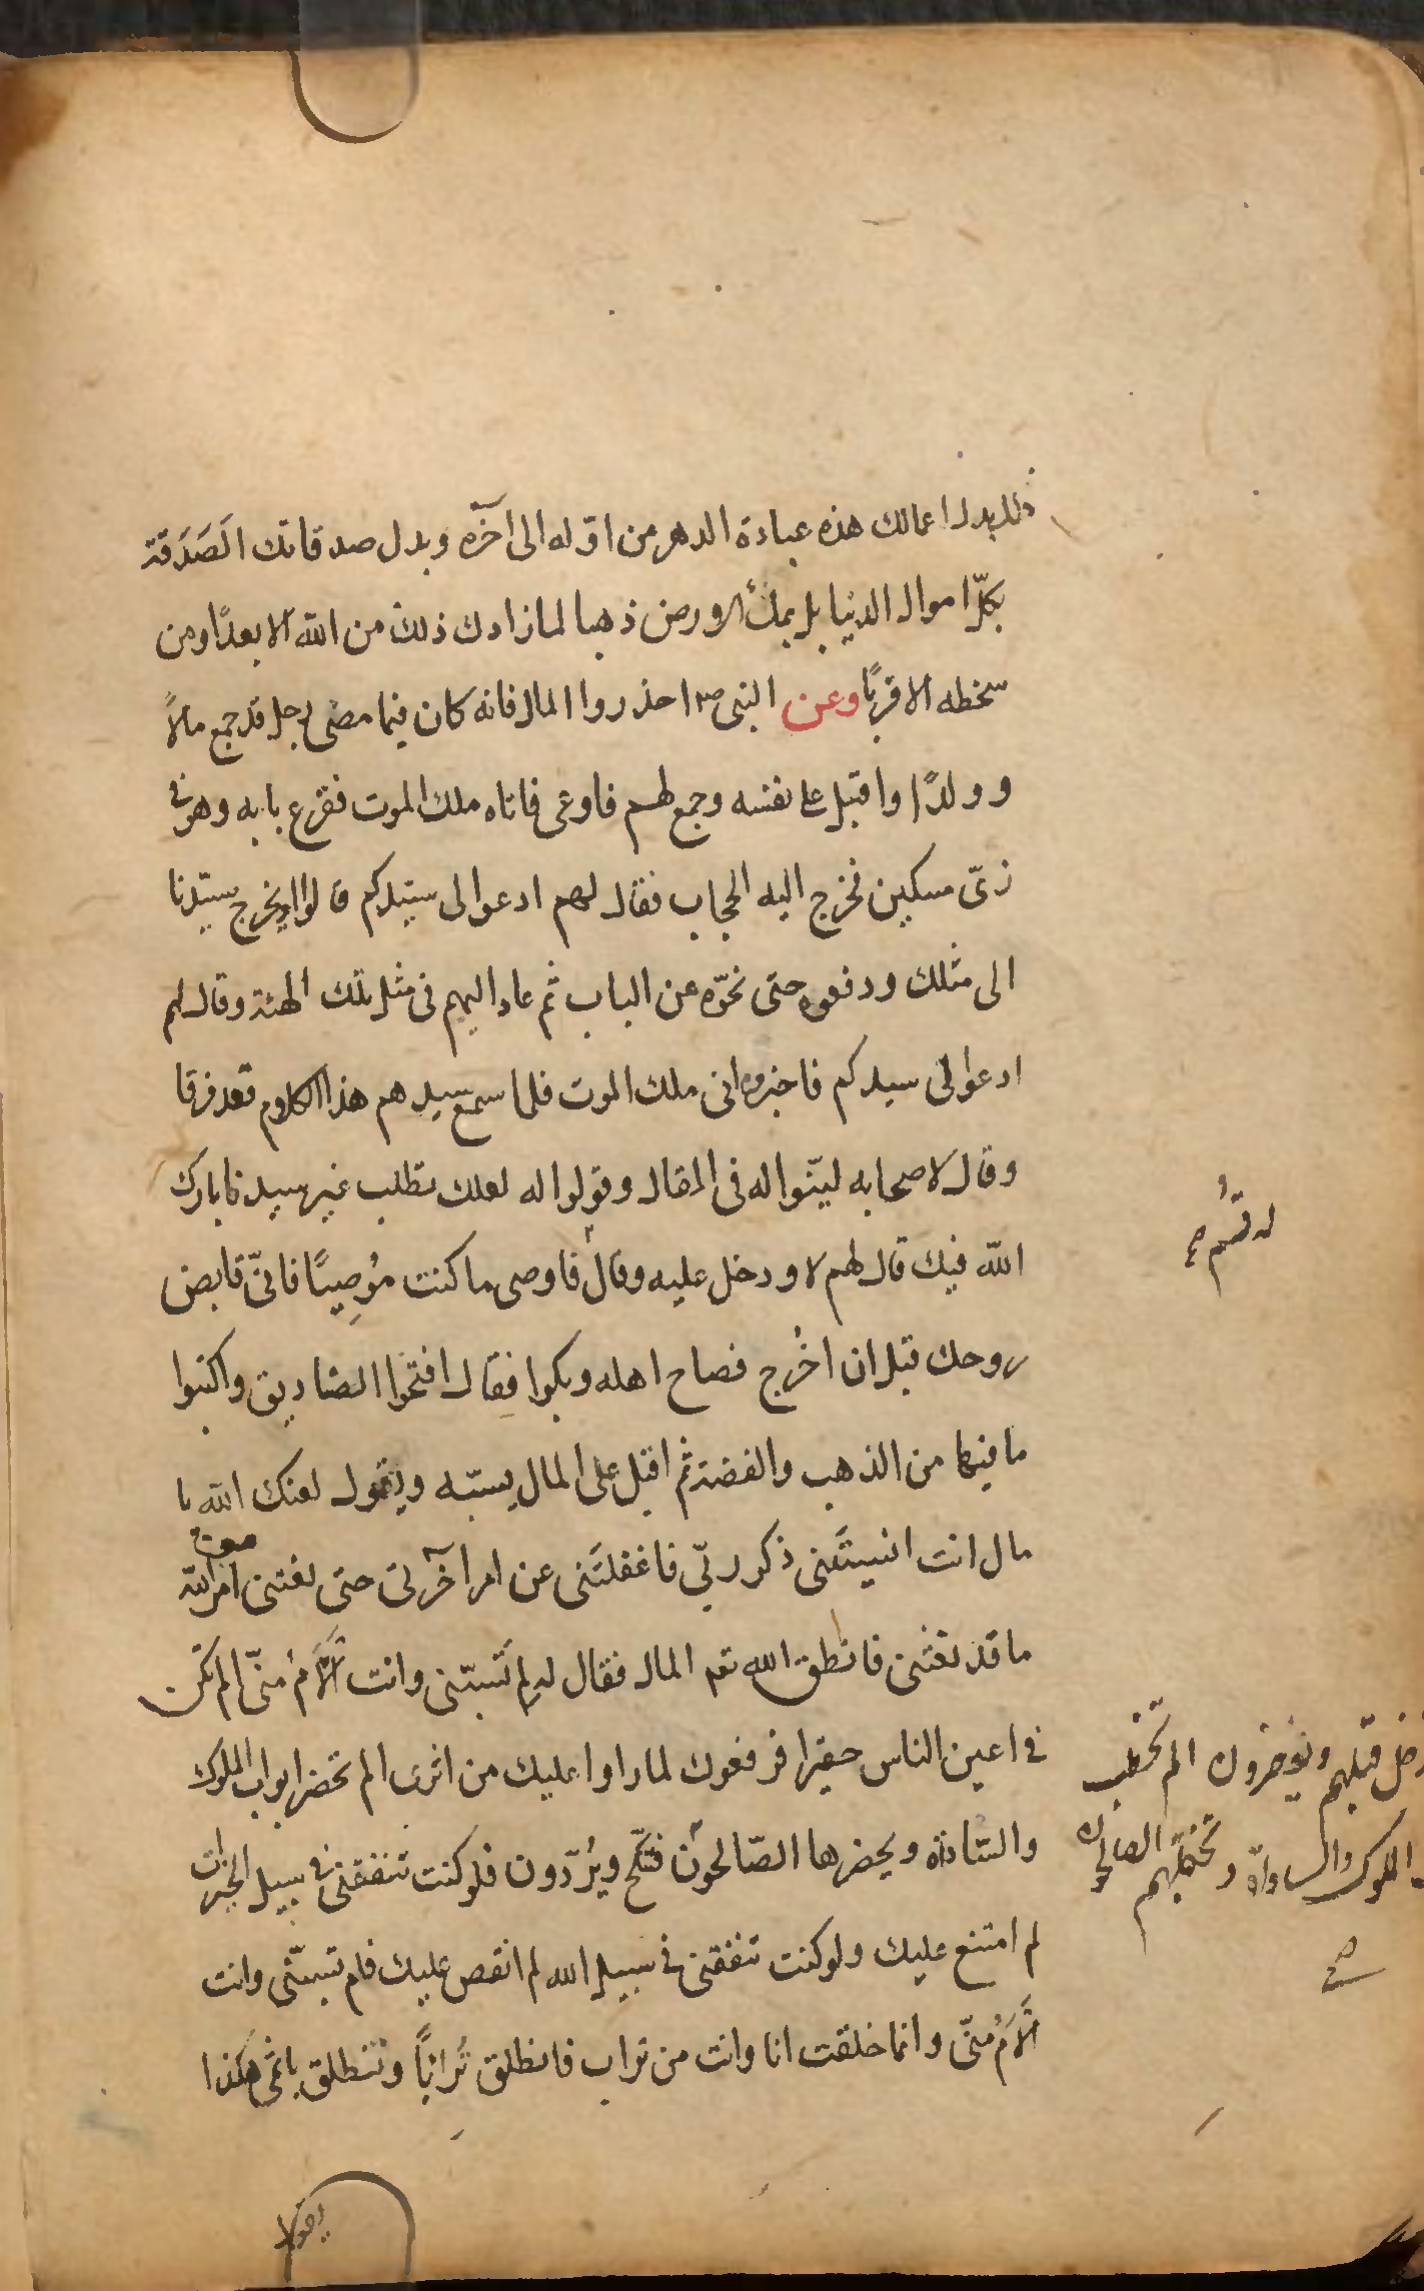 ذلك بدل اعمالك هذه عبادة الدهر من اوّله الى آخره وبدل صدقاتك الصَدَقة
بكلّ اموال الدنيا بل بملأ الارض ذهبا لما زادك ذلك من الله الا بعدًا ومن
سخطه الا قربًا وعن النبى ص احذروا المال فانه كان فيما مضى رجل قد جمع مالاً
وولدًا واقبل على نفسه وجمع لهم فاوعى فاتاه ملك الموت فقرع بابه وهو فى
زىّ مسكين فخرج اليه الحجاب فقال لهم ادعوا لى سيّدكم قالوا ايخرج سيّدنا
الى مثلك ودفعوه حتى نحّوه عن الباب ثم عاد اليهم فى مثل تلك الهيئة وقال لهم
ادعوا لى سيدكم فاخبروه انى ملك الموت فلما سمع سيدهم هذا الكلام قعد فرقا
وقال لاصحابه ليّنوا له فى المقال وقولوا له لعلك تطلب غير سيدنا بارك
الله فيك قال لهم لا ودخل عليه وقال فاوصى ما كنت مُوصِيًا فانّى قابض
روحك قبل ان اخُرج فصاح اهله وبكوا فقال افتحوا الصناديق واكتبوا
ما فيها من الذهب والفضة ثم اقبل على المال يسبّه ويقول لعنك الله يا
مال انت انسيتَنى ذكر ربّى فاغفلتَنى عن امر آخرتى حتى بغتنى امر الله
ما قد بغتنى فانطق الله تعم المال فقال له لِمَ تسبّنى وانت اَلْأَمُ منّى الم تكن
فى اعين الناس حقيرا فرفعوك لما راوا عليك من اثرى الم تحضر ابواب الملوك
والسّادة ويحضرها الصّالحون فتلج ويُردّون فلو كنت تنفقنى فى سبيل الخيرات
لم امتنع عليك ولو كنت تنفقنى فى سبيل الله لم انقص عليك فلم تسبّنى وانت
اَلْأَمُ منّى وانما خلقت انا وانت من تراب فانطلق تُرابًا وتنطلق باثمى هكذا
قبلهم ويؤخرون الم تخطب
الملوك والسادة وتخطبهم الصالحون
صح
يقول